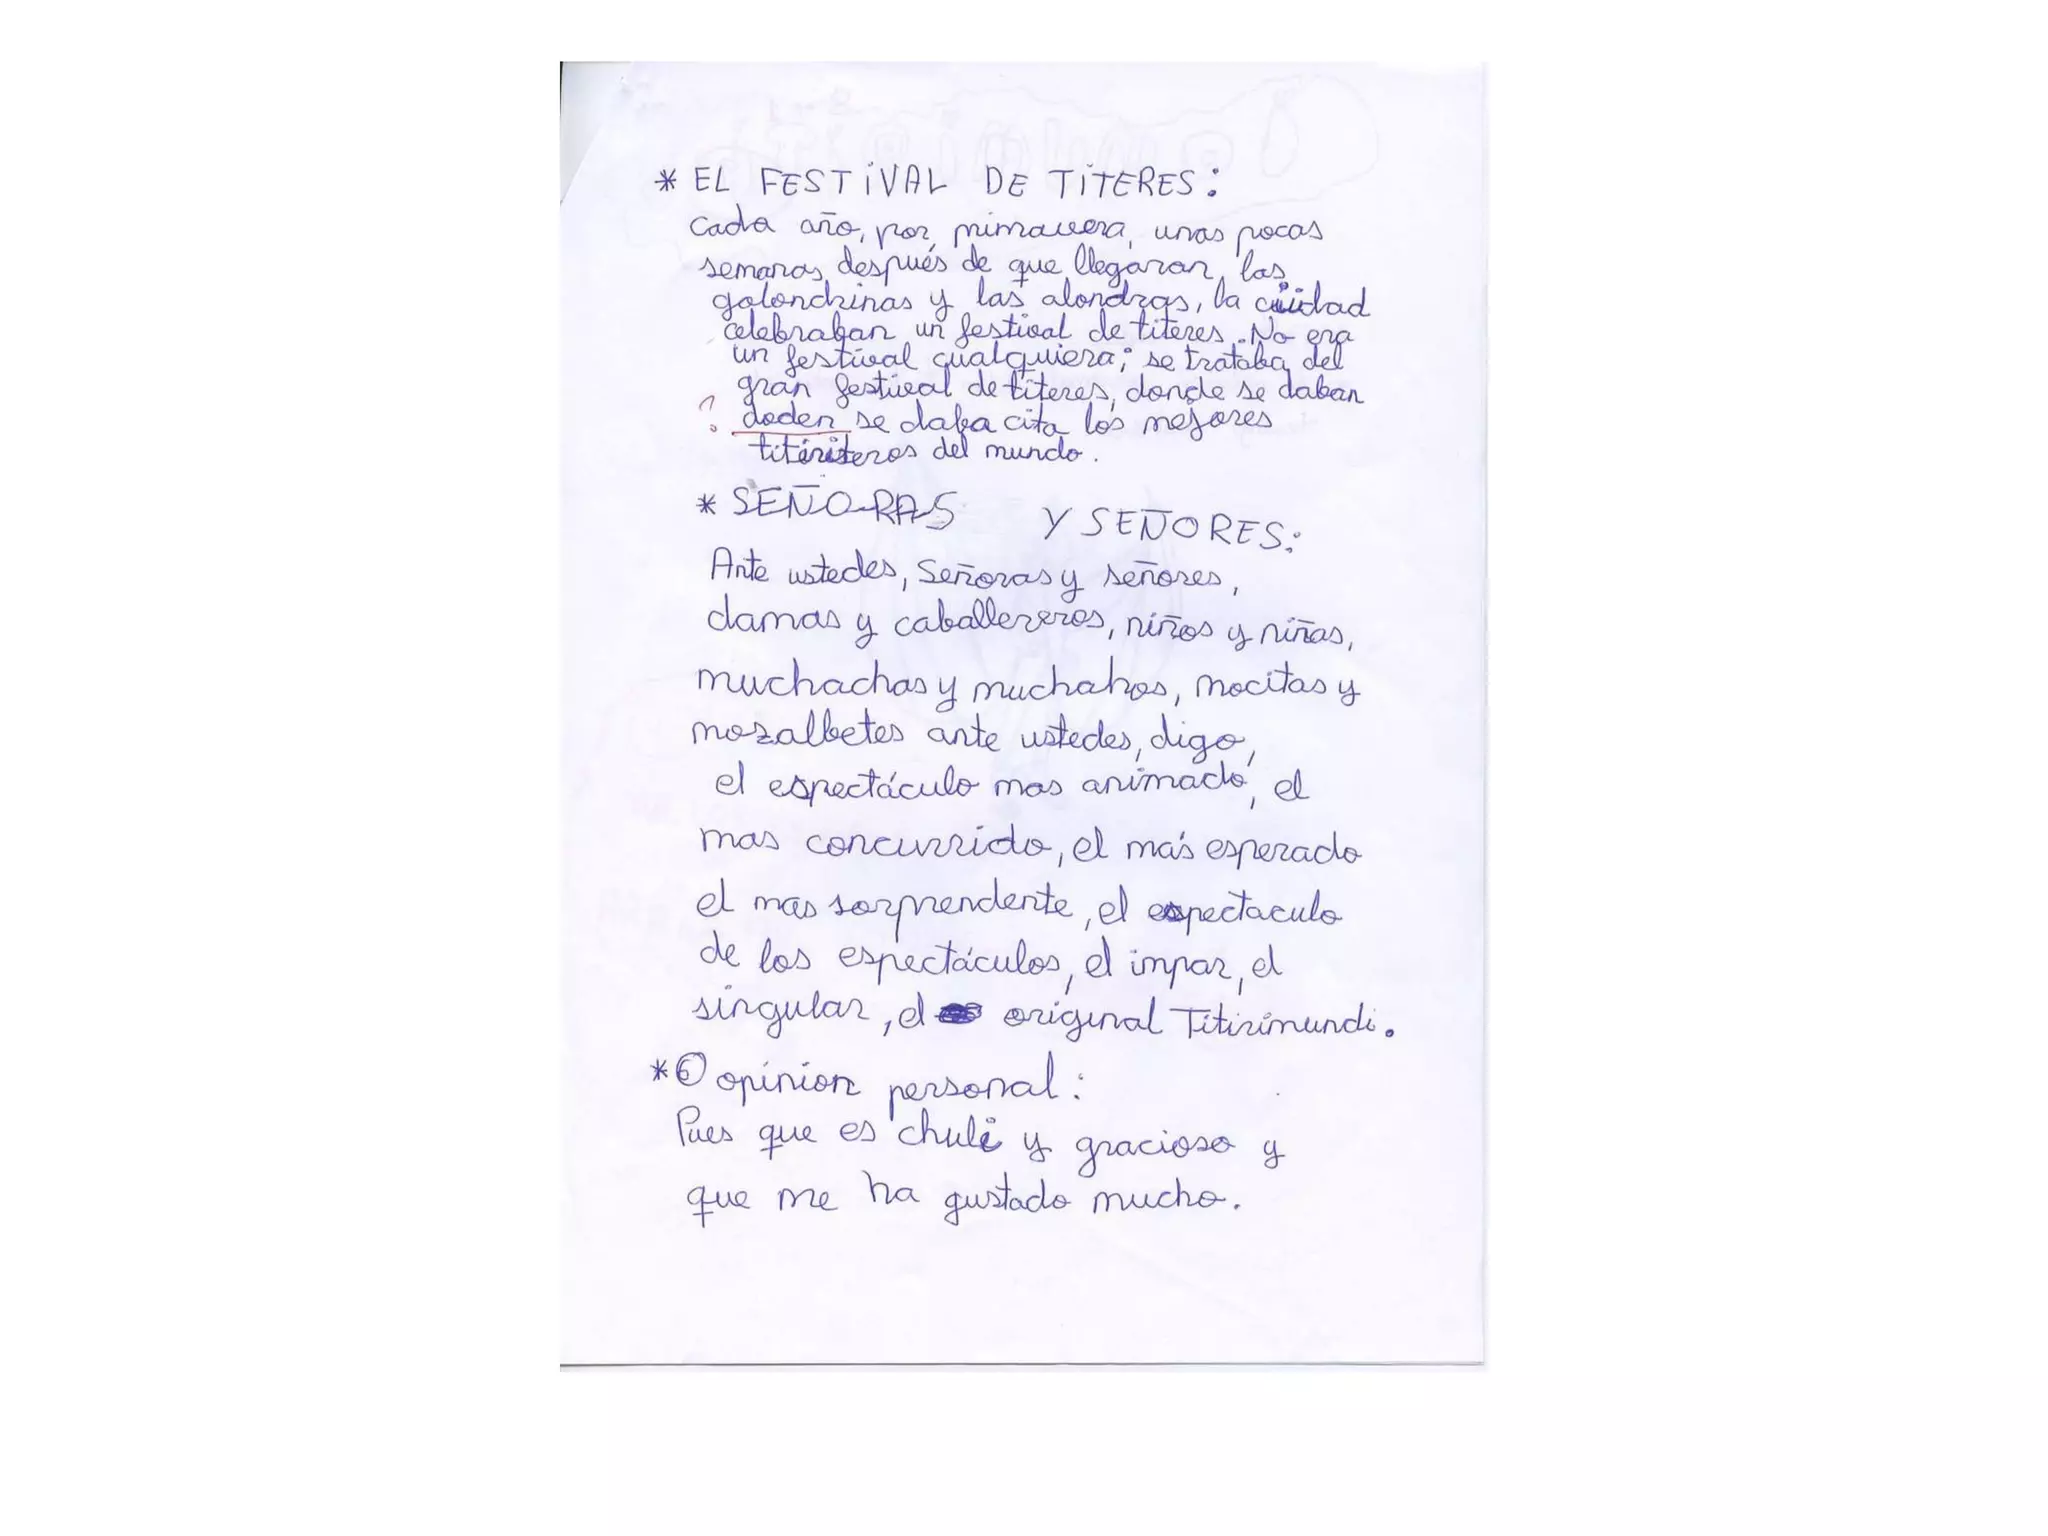 * EL FESTiVAL DE TiTERES:
Cada año, por primavera, unas pocas
semanas después de que llegaran las
golondrinas y las alondras, la ciudad
celebraban un festival de titeres. No era
un festival cualquiera; se trataba del
gran festival de títeres, donde se daban
? doden se daba cita los mejores
titiriteros del mundo.
* SEÑORAS Y SEÑORES:
Ante ustedes, Señoras y señores,
damas y caballereros, niños y niñas,
muchachas y muchahos, mocitas y
mozalbetes ante ustedes, digo,
el espectáculo mas animado, el
mas concurrido, el más esperado
el mas sorprendente, el espectaculo
de los espectáculos, el impar, el
singular, el original Titirimundi.
* 6 opinion personal:
Pues que es chuli y gracioso y
que me ha gustado mucho.